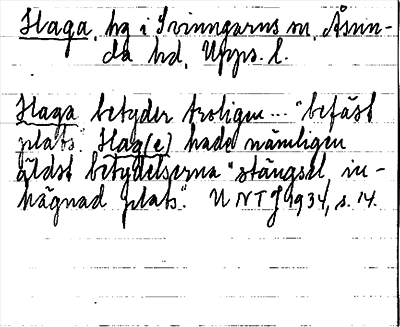 Haga, hg i Svinngarns sn, Åsun-
da hd, Upps. l.
Haga betyder troligen ... "befäst
plats". Hag(e) hade nämligen
äldst betydelserna "stängsel, in-
hägnad plats". UNT 1934, s. 14.